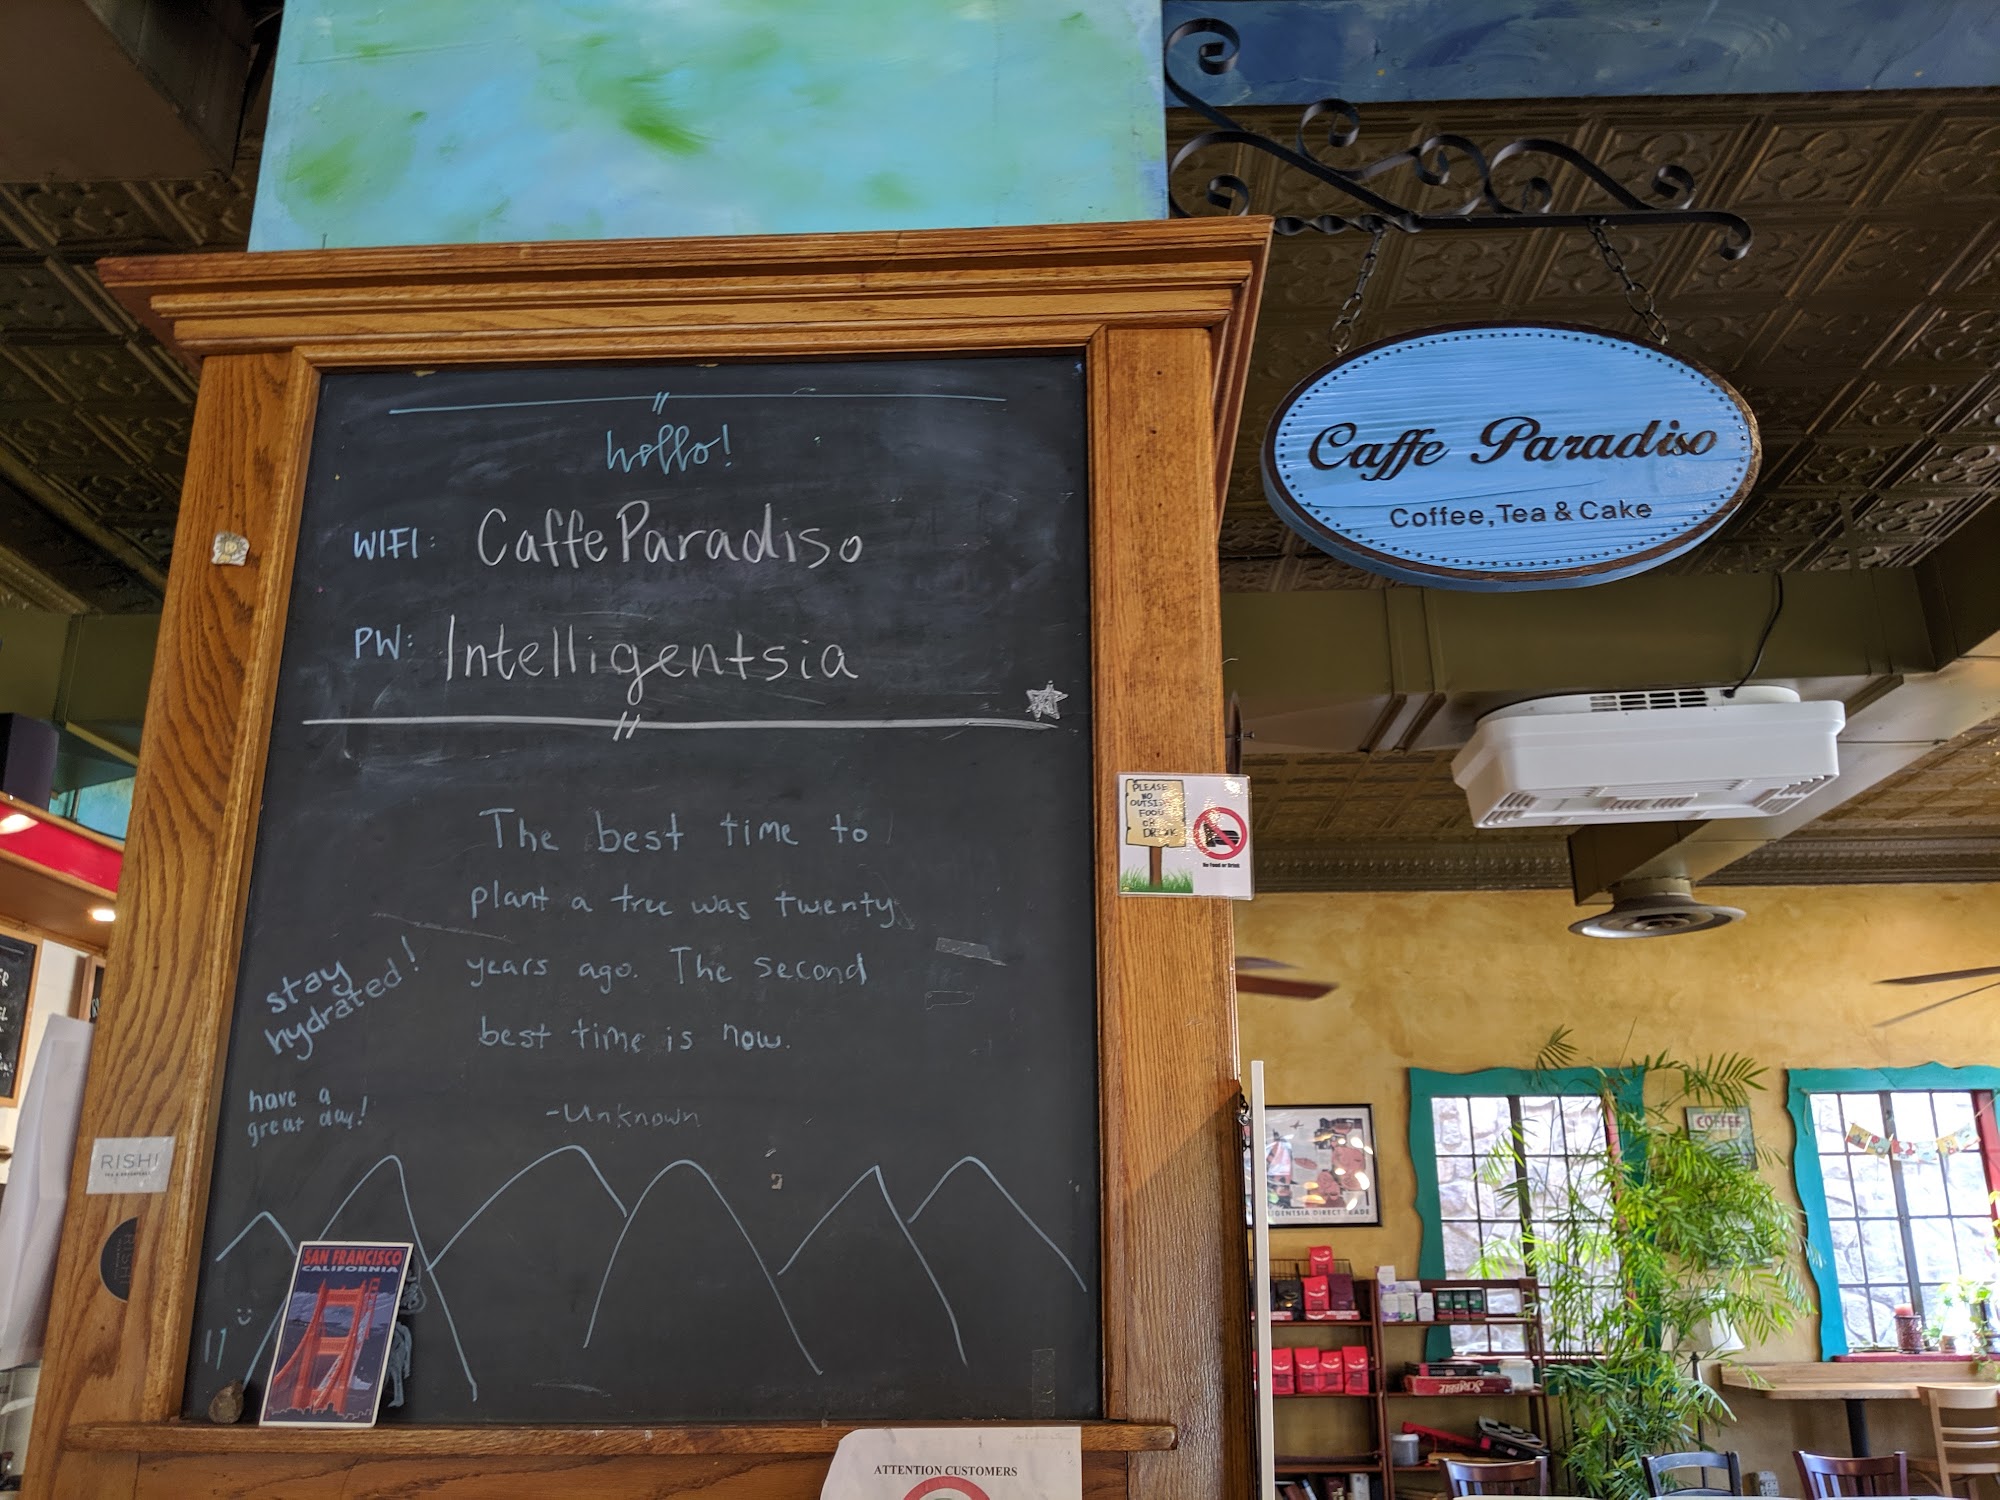 hello!
WIFI: CaffeParadiso
PW: Intelligentsia
The best time to
plant a tree was twenty
years ago. The second
best time is now.
-Unknown
stay
hydrated!
have a
great day!
SAN FRANCISCO
CALIFORNIA
RISHI
RISHI
Caffe Paradiso
Coffee, Tea & Cake
PLEASE
NO
OUTSIDE
FOOD
OR
DRINK
No Food or Drink
ATTENTION CUSTOMERS
COFFEE
LIGENTSIA DIRECT TRADE
SCRABBLE